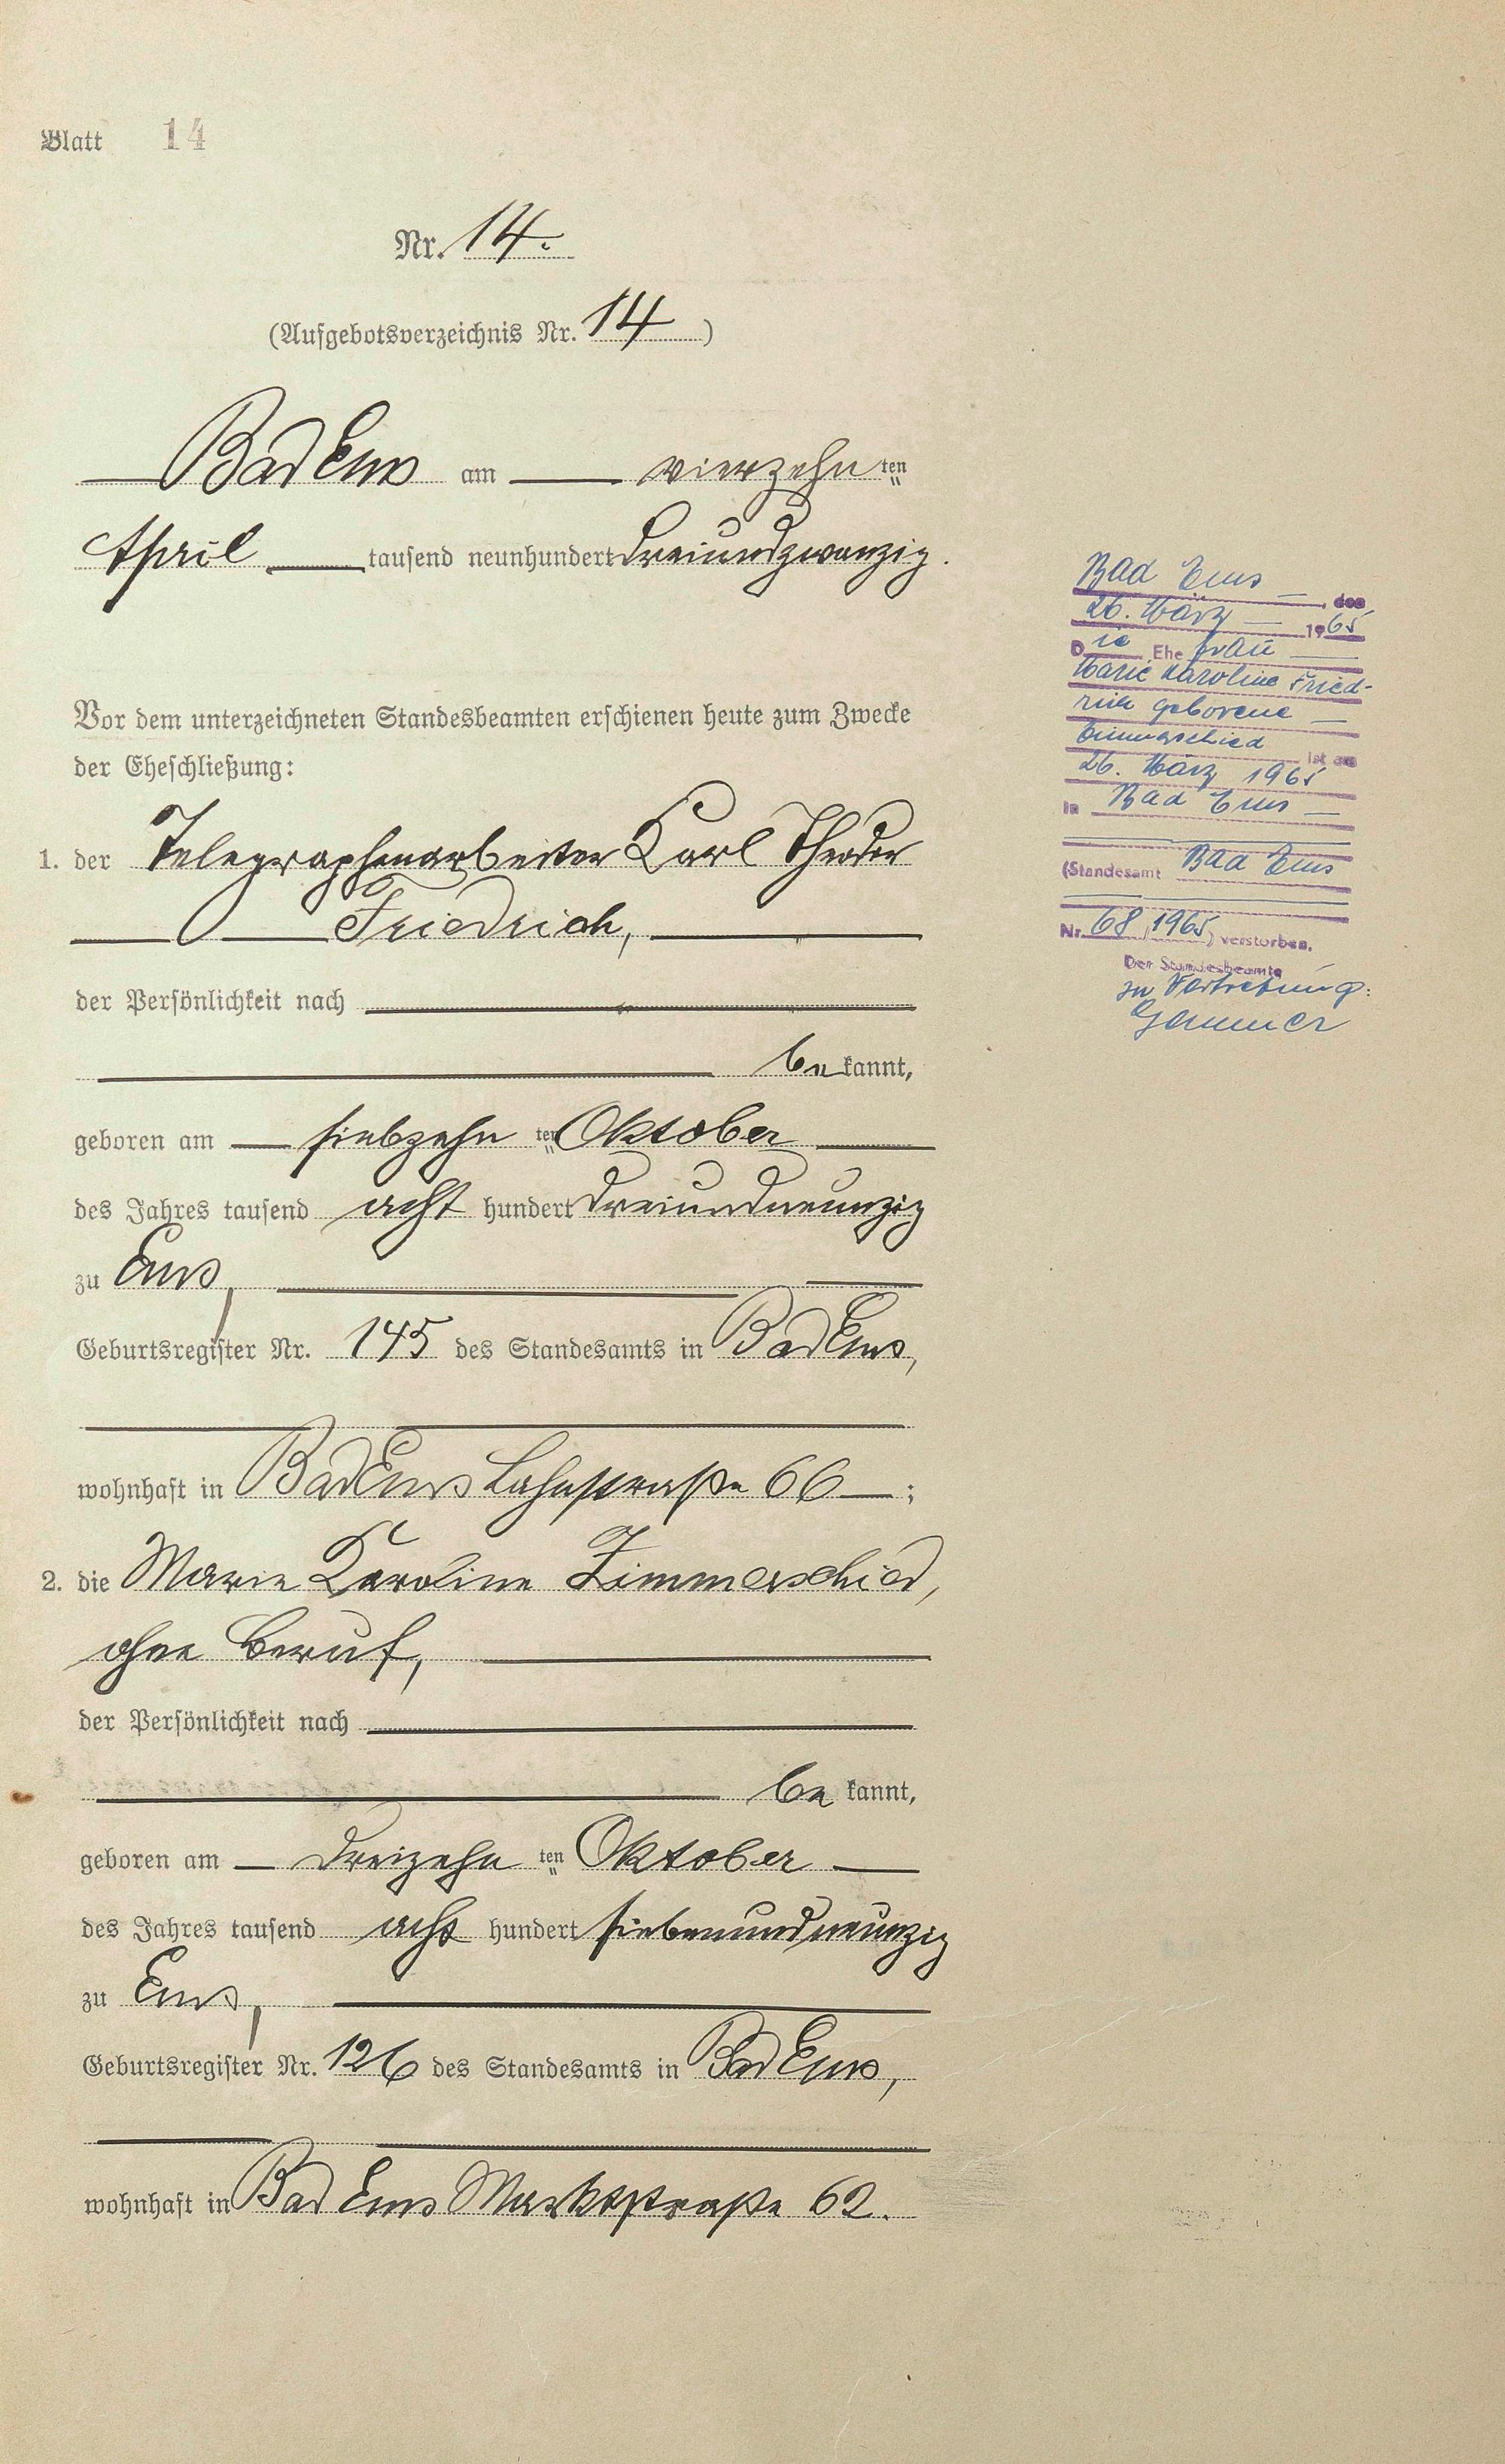 Blatt 14
Nr. 14.
(Aufgebotsverzeichnis Nr. 14)
Bad Ems am vierzehn ten
April tausend neunhundert dreiundzwanzig.
Vor dem unterzeichneten Standesbeamten erschienen heute zum Zwecke
der Eheschließung:
1. der Telegraphenarbeiter Karl Theodor
Friedrich,
der Persönlichkeit nach
be kannt,
geboren am siebzehn ten Oktober
des Jahres tausend acht hundert dreiundneunzig
zu Ems,
Geburtsregister Nr. 145 des Standesamts in Bad Ems,
wohnhaft in Bad Ems Lahnstraße 66;
2. die Marie Karoline Zimmerschied,
ohne Beruf,
der Persönlichkeit nach
be kannt,
geboren am dreizehn ten Oktober
des Jahres tausend acht hundert siebenundneunzig
zu Ems,
Geburtsregister Nr. 126 des Standesamts in Bad Ems,
wohnhaft in Bad Ems Marktstraße 62.
Bad Ems, den
26. März 1965
Die Ehefrau
Marie Karoline Fried-
rich geborene
Zimmerschied ist am
26. März 1965
in Bad Ems
(Standesamt Bad Ems
Nr. 68/1965) verstorben.
Der Standesbeamte
In Vertretung: